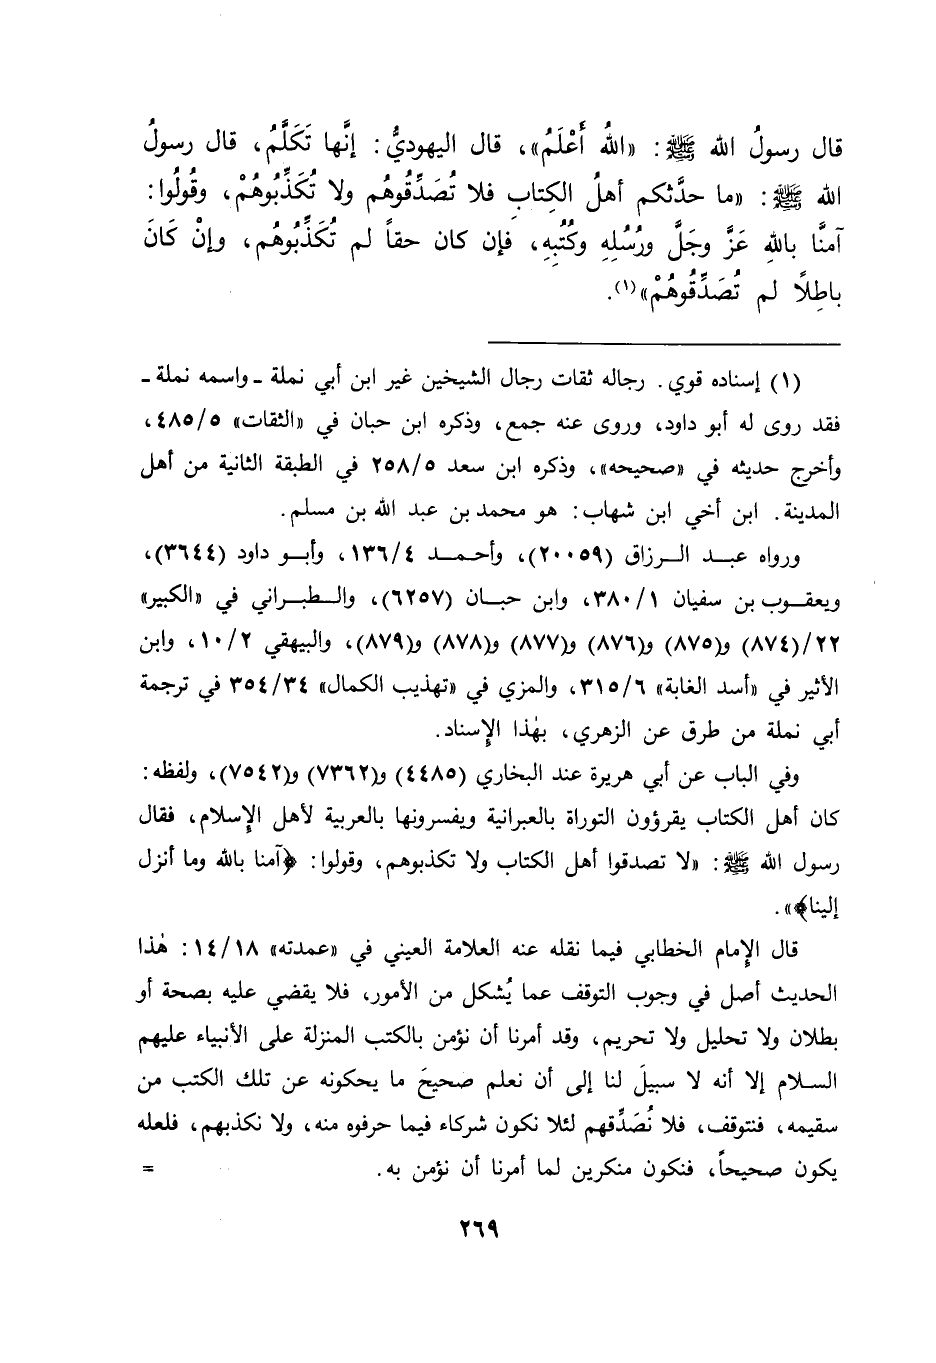 قال رسولُ الله ﷺ: «اللهُ أَعْلَمُ»، قال اليهوديُّ: إنَّها تَكَلَّمُ، قال رسولُ
الله ﷺ: «ما حدَّثكم أهلُ الكتابِ فلا تُصَدِّقُوهُم ولا تُكَذِّبُوهُمْ، وقُولُوا:
آمنَّا باللهِ عَزَّ وجَلَّ ورُسُلِهِ وكُتُبِهِ، فإن كان حقاً لم تُكَذِّبُوهُم، وإنْ كَانَ
باطِلًا لم تُصَدِّقُوهُمْ»(١).
(١) إسناده قوي. رجاله ثقات رجال الشيخين غير ابن أبي نملة ـ واسمه نملة ـ
فقد روى له أبو داود، وروى عنه جمع، وذكره ابن حبان في «الثقات» ٤٨٥/٥،
وأخرج حديثه في «صحيحه»، وذكره ابن سعد ٢٥٨/٥ في الطبقة الثانية من أهل
المدينة. ابن أخي ابن شهاب: هو محمد بن عبد الله بن مسلم.
ورواه عبد الرزاق (٢٠٠٥٩)، وأحمد ١٣٦/٤، وأبو داود (٣٦٤٤)،
ويعقوب بن سفيان ٣٨٠/١، وابن حبان (٦٢٥٧)، والطبراني في «الكبير»
٢٢/(٨٧٤) و(٨٧٥) و(٨٧٦) و(٨٧٧) و(٨٧٨) و(٨٧٩)، والبيهقي ١٠/٢، وابن
الأثير في «أسد الغابة» ٣١٥/٦، والمزي في «تهذيب الكمال» ٣٥٤/٣٤ في ترجمة
أبي نملة من طرق عن الزهري، بهٰذا الإسناد.
وفي الباب عن أبي هريرة عند البخاري (٤٤٨٥) و(٧٣٦٢) و(٧٥٤٢)، ولفظه:
كان أهل الكتاب يقرؤون التوراة بالعبرانية ويفسرونها بالعربية لأهل الإسلام، فقال
رسول الله ﷺ: «لا تصدقوا أهل الكتاب ولا تكذبوهم، وقولوا: ﴿آمنا بالله وما أنزل
إلينا﴾».
قال الإمام الخطابي فيما نقله عنه العلامة العيني في «عمدته» ١٤/١٨: هٰذا
الحديث أصل في وجوب التوقف عما يُشكل من الأمور، فلا يقضي عليه بصحة أو
بطلان ولا تحليل ولا تحريم، وقد أمرنا أن نؤمن بالكتب المنزلة على الأنبياء عليهم
السلام إلا أنه لا سبيلَ لنا إلى أن نعلم صحيحَ ما يحكونه عن تلك الكتب من
سقيمه، فنتوقف، فلا نُصَدِّقهم لئلا نكون شركاء فيما حرفوه منه، ولا نكذبهم، فلعله
يكون صحيحاً، فنكون منكرين لما أمرنا أن نؤمن به. =
٢٦٩